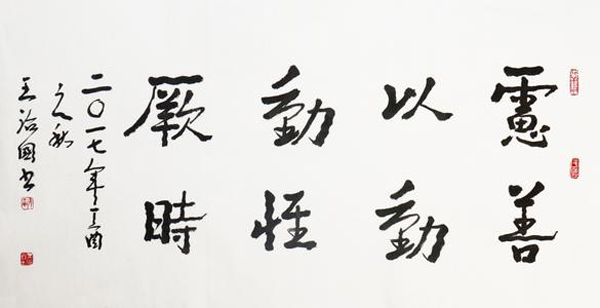 慮善
以動
動惟
厥時
二〇一七年丁酉
之秋
王治國书